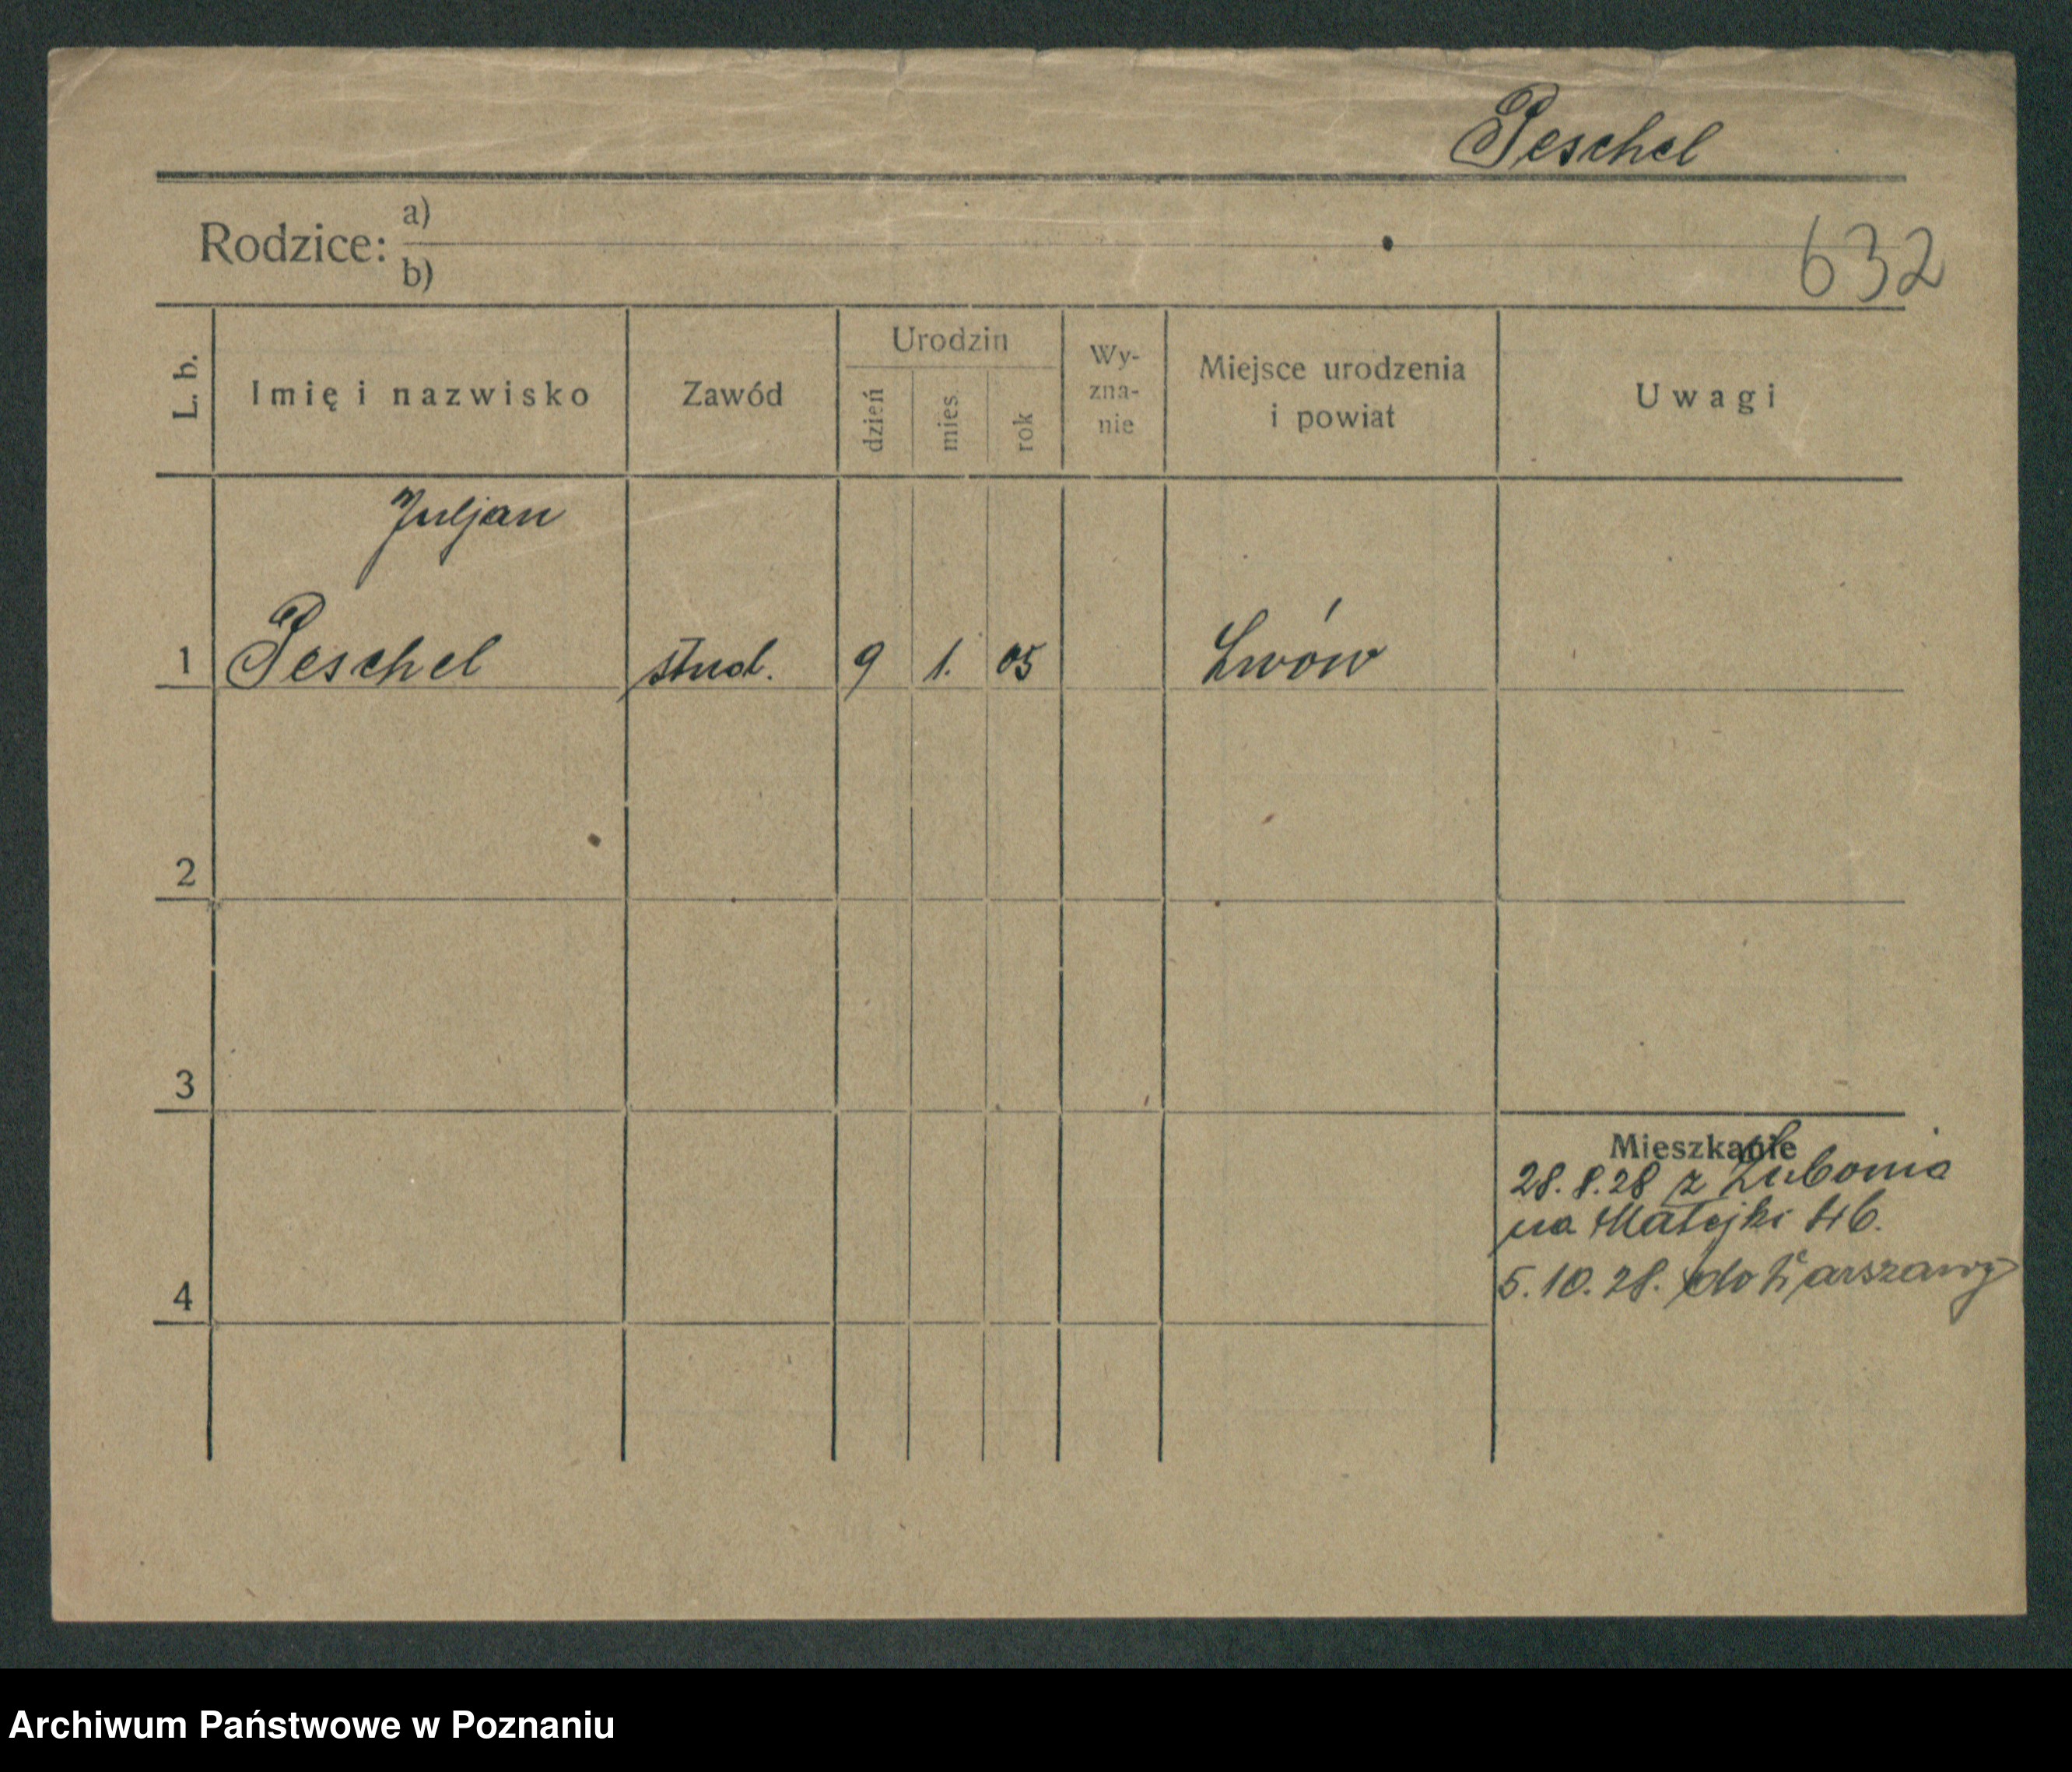 Peschel
Rodzice: a)
b)
632
L. b.
Imię i nazwisko
Zawód
Urodzin
dzień
mies.
rok
Wy-
zna-
nie
Miejsce urodzenia
i powiat
Uwagi
Juljan
1 Peschel stud. 9 1. 05 Lwów
2
3
Mieszkanie
28. 8. 28 z Lubonia
na Matejki 46.
5. 10. 28. do Warszawy
4
Archiwum Państwowe w Poznaniu